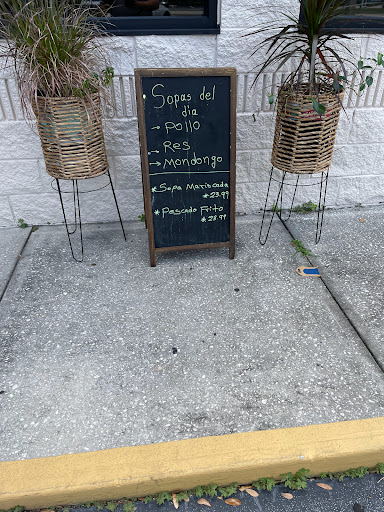 Sopas del
dia
→ Pollo
→ Res
→ Mondongo
* Sopa Mariscada
* 23.99
* Pescado Frito
* 28.99